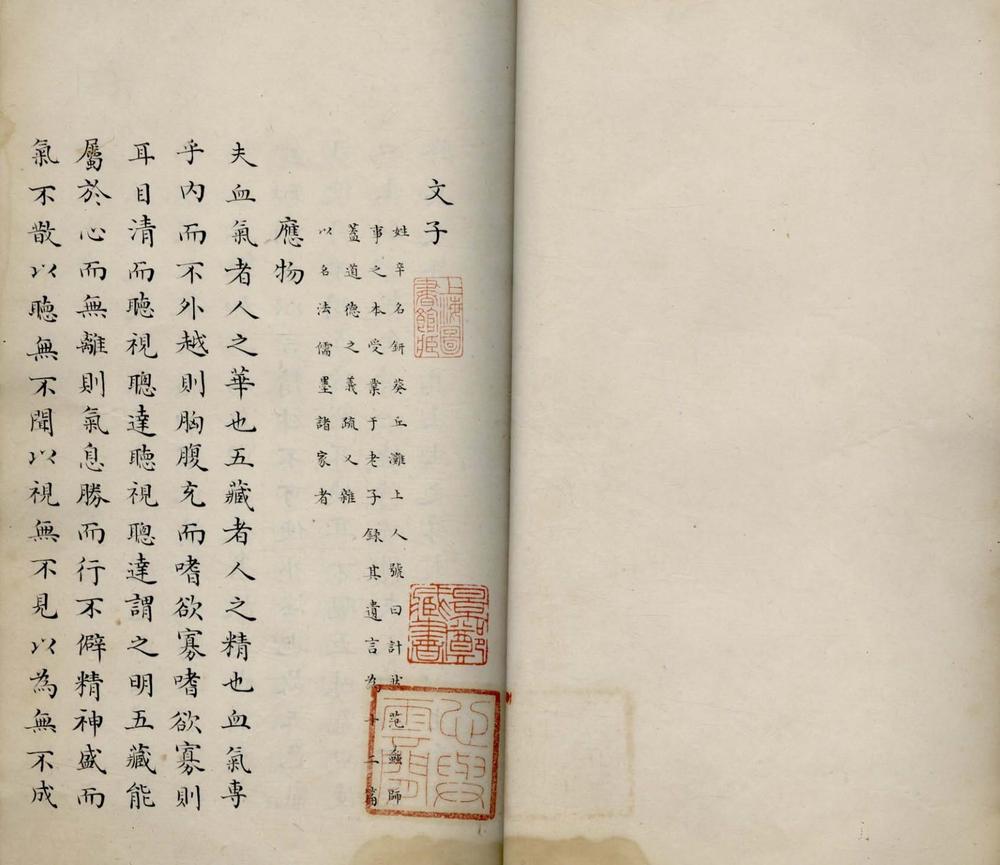 文子
姓辛名鈃葵丘濮上人號曰計然范蠡師
事之本受業于老子録其遺言為十二篇
蓋道德之義疏又雜
以名法儒墨諸家者
應物
夫血氣者人之華也五藏者人之精也血氣專
乎内而不外越則胸腹充而嗜欲寡嗜欲寡則
耳目清而聽視聰達聽視聰達謂之明五藏能
屬於心而無離則氣息勝而行不僻精神盛而
氣不散以聽無不聞以視無不見以為無不成
上海圖書館藏
景鄭藏書